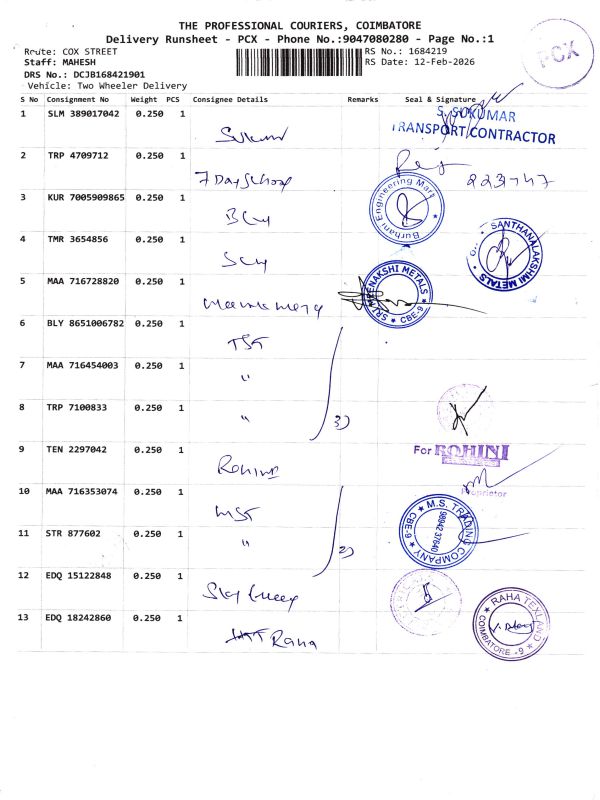 THE PROFESSIONAL COURIERS, COIMBATORE
Delivery Runsheet - PCX - Phone No.:9047080280 - Page No.:1
Route: COX STREET
RS No.: 1684219
Staff: MAHESH
RS Date: 12-Feb-2026
DRS No.: DCJB168421901
Vehicle: Two Wheeler Delivery
PCX
S No Consignment No Weight PCS Consignee Details Remarks Seal & Signature
1 SLM 389017042 0.250 1
S. SUKUMAR
TRANSPORT CONTRACTOR
2 TRP 4709712 0.250 1 7 Day School
3 KUR 7005909865 0.250 1
Burhani Engineering Mart
4 TMR 3654856 0.250 1
SANTHANALAKSHMI METALS
5 MAA 716728820 0.250 1
SRI MEENAKSHI METALS CBE-9
6 BLY 8651006782 0.250 1 TST
7 MAA 716454003 0.250 1 "
8 TRP 7100833 0.250 1 " 3)
9 TEN 2297042 0.250 1 Rohini
For ROHINI
Proprietor
10 MAA 716353074 0.250 1 MST
11 STR 877602 0.250 1 " 2)
M.S. TRADING COMPANY CBE-9
98942 37640
12 EDQ 15122848 0.250 1
13 EDQ 18242860 0.250 1 Raha
RAHA TEXLAND
COIMBATORE - 9